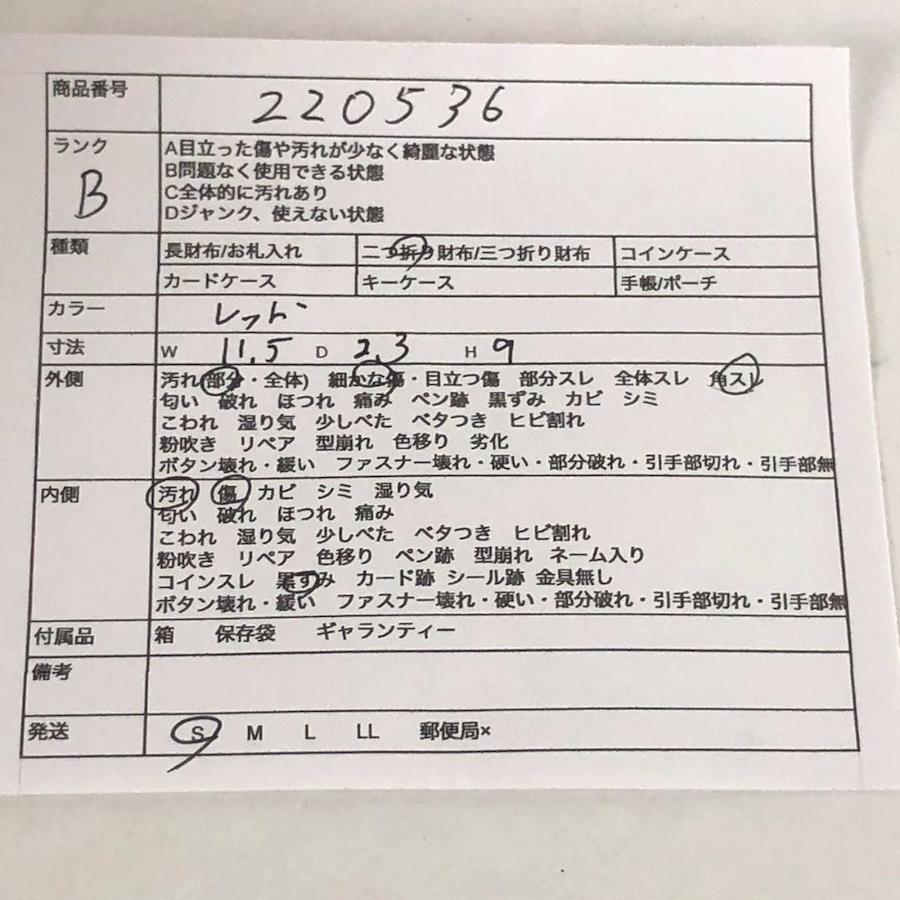 商品番号 220536
ランク A目立った傷や汚れが少なく綺麗な状態
B B問題なく使用できる状態
C全体的に汚れあり
Dジャンク、使えない状態
種類 長財布/お札入れ 二つ折り財布/三つ折り財布 コインケース
カードケース キーケース 手帳/ポーチ
カラー レッド
寸法 W 11.5 D 2.3 H 9
外側 汚れ(部分・全体) 細かな傷・目立つ傷 部分スレ 全体スレ 角スレ
匂い 破れ ほつれ 痛み ペン跡 黒ずみ カビ シミ
こわれ 湿り気 少しべた ベタつき ヒビ割れ
粉吹き リペア 型崩れ 色移り 劣化
ボタン壊れ・緩い ファスナー壊れ・硬い・部分破れ・引手部切れ・引手部無
内側 汚れ 傷 カビ シミ 湿り気
匂い 破れ ほつれ 痛み
こわれ 湿り気 少しべた ベタつき ヒビ割れ
粉吹き リペア 色移り ペン跡 型崩れ ネーム入り
コインスレ 黒ずみ カード跡 シール跡 金具無し
ボタン壊れ・緩い ファスナー壊れ・硬い・部分破れ・引手部切れ・引手部無
付属品 箱 保存袋 ギャランティー
備考
発送 S M L LL 郵便局×